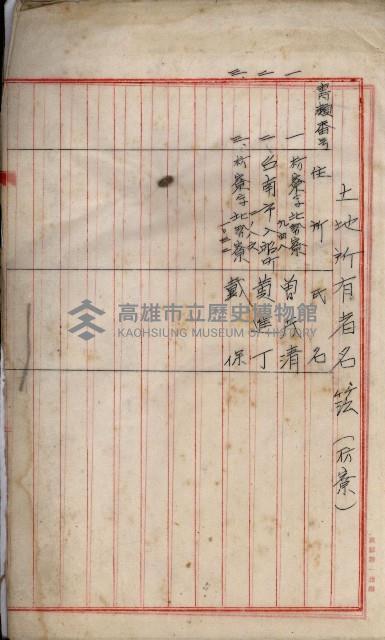 土地所有者名簿（枋寮）
書類番号 住所 氏名
一 一 枋寮字北勢寮 九四八 曽 清
二 二 台南市入船町 一ノ八六 黄 丁
三 三 枋寮字北勢寮 戴 保
高雄市立歷史博物館
KAOHSIUNG MUSEUM OF HISTORY